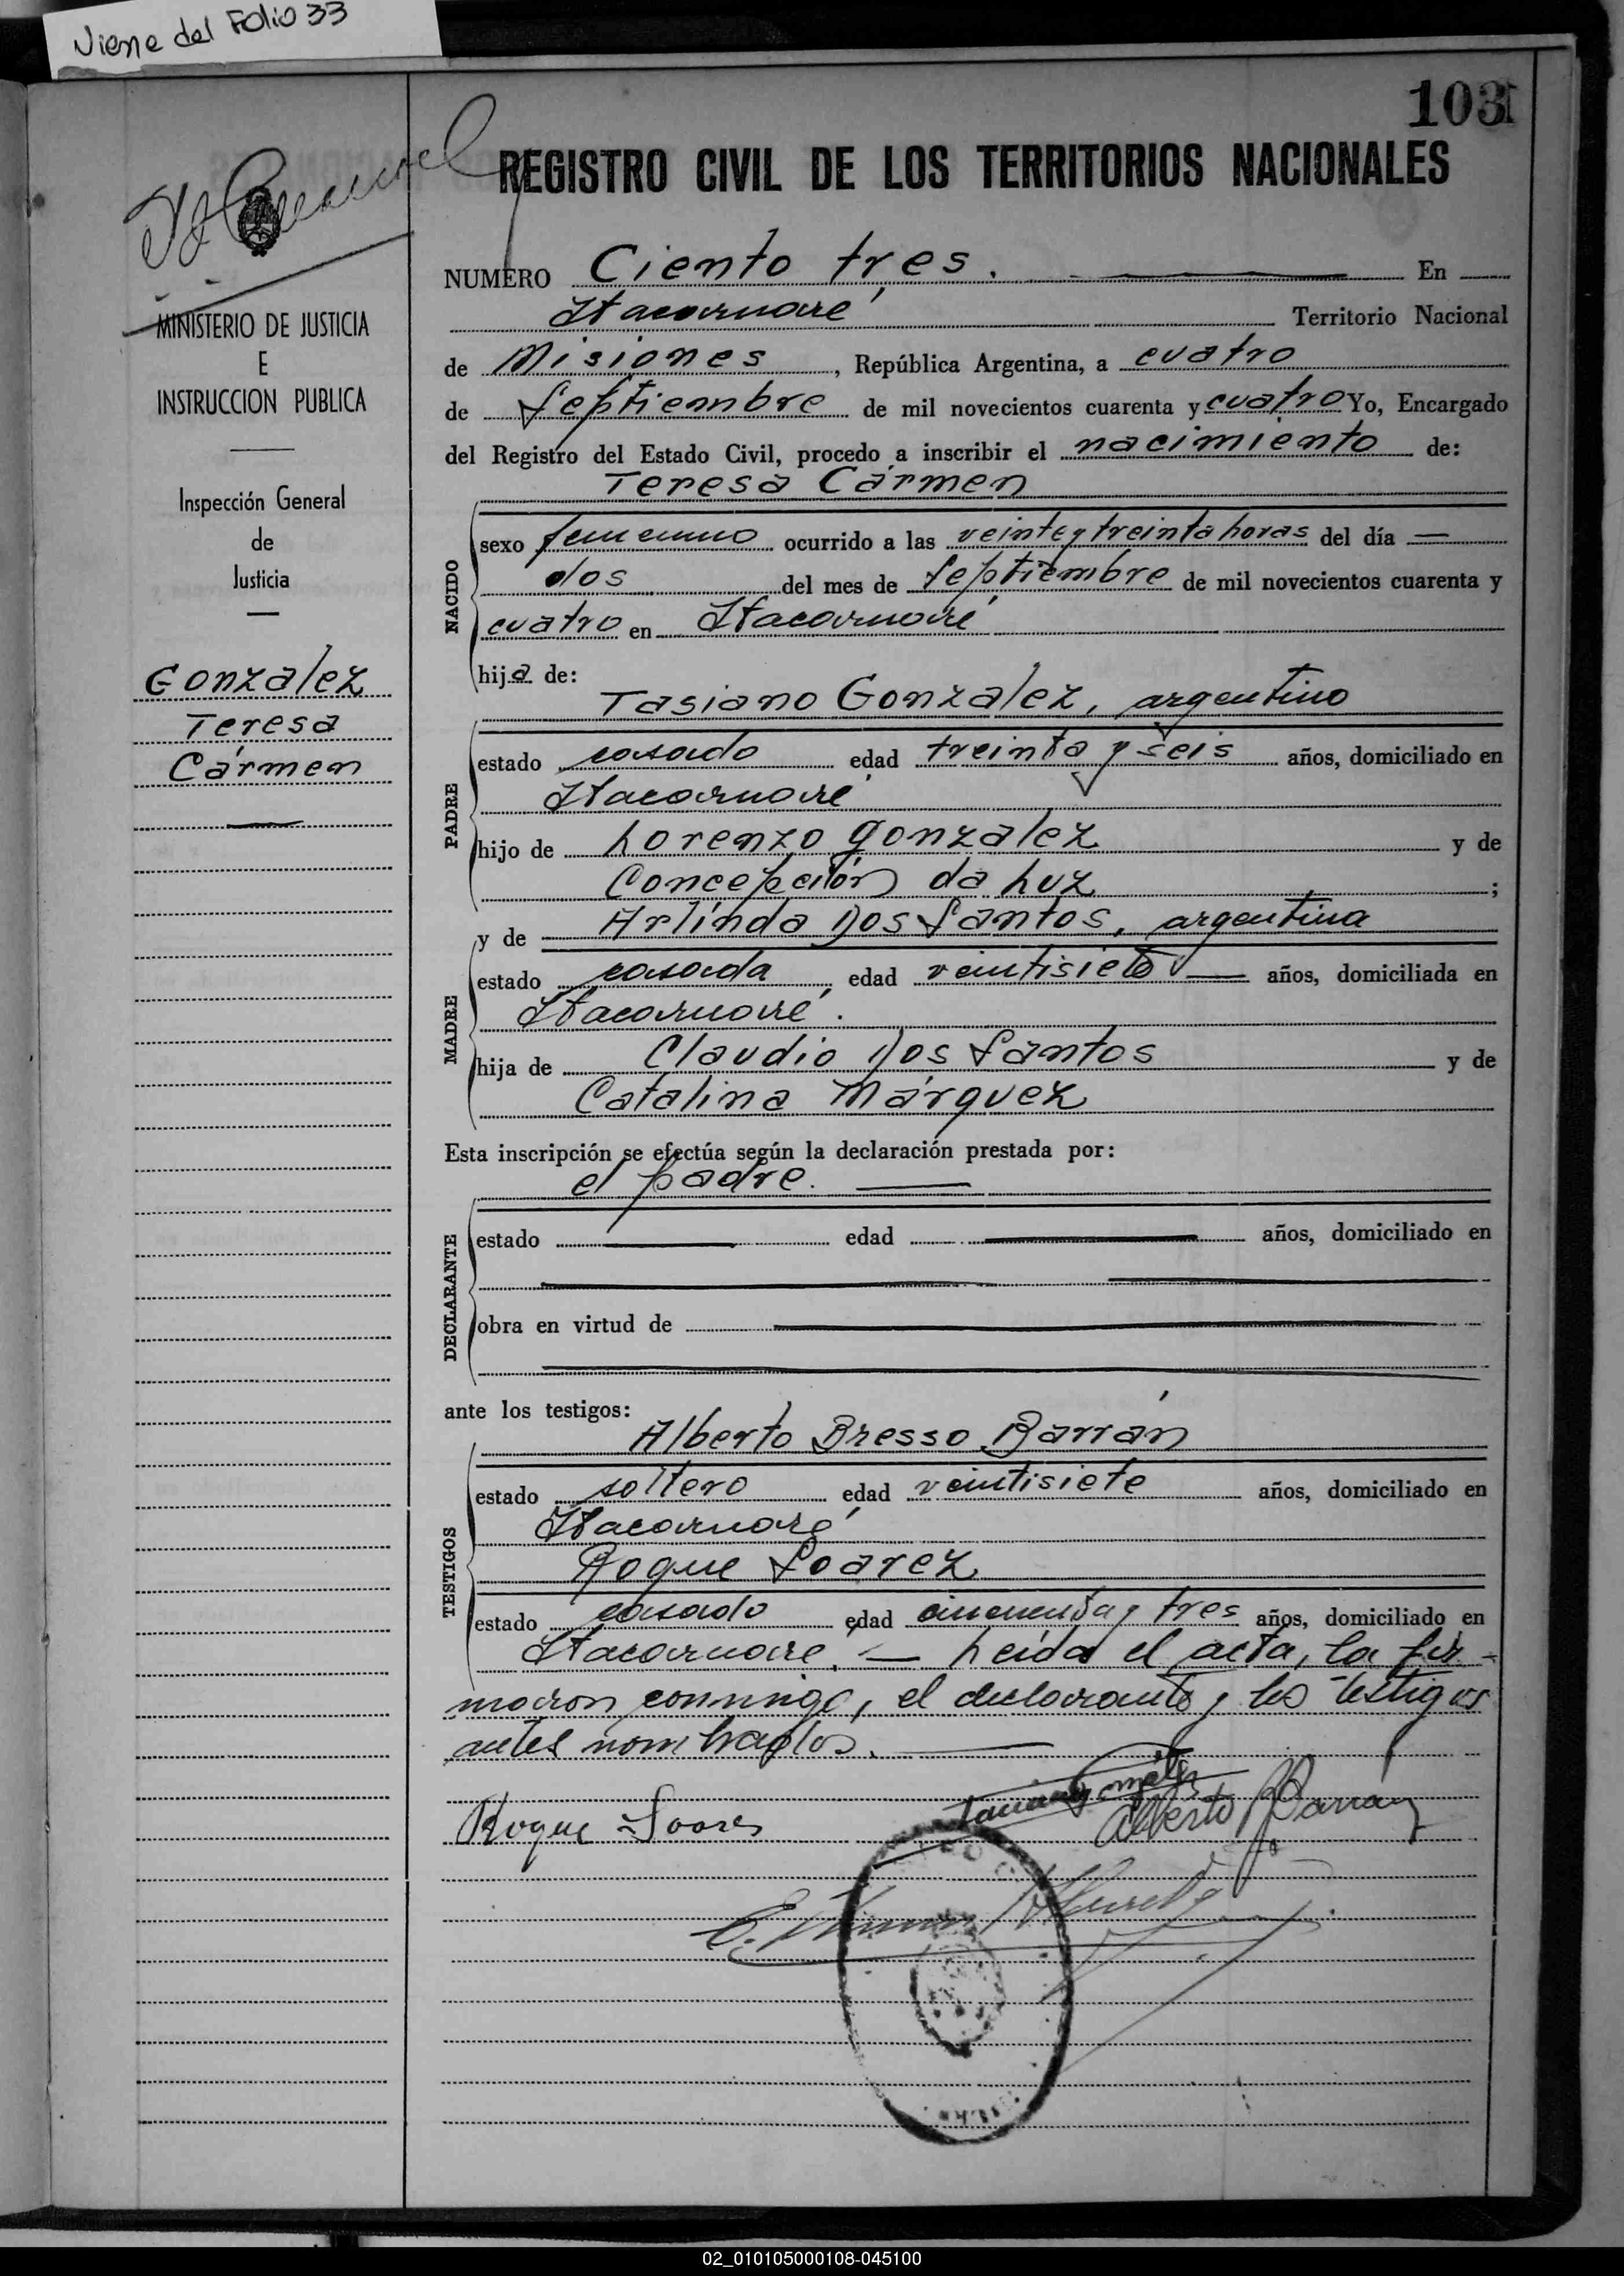 Viene del Folio 33
103
REGISTRO CIVIL DE LOS TERRITORIOS NACIONALES
MINISTERIO DE JUSTICIA
E
INSTRUCCION PUBLICA
Inspección General
de
Justicia
Gonzalez
Teresa
Cármen
NUMERO Ciento tres. En
Itacaruaré Territorio Nacional
de Misiones, República Argentina, a cuatro
de Septiembre de mil novecientos cuarenta y cuatro Yo, Encargado
del Registro del Estado Civil, procedo a inscribir el nacimiento de:
Teresa Cármen
NACIDO
sexo femenino ocurrido a las veinte y treinta horas del día
dos del mes de Septiembre de mil novecientos cuarenta y
cuatro en Itacaruaré
hija de:
Tasiano Gonzalez, argentino
PADRE
estado casado edad treinta y seis años, domiciliado en
Itacaruaré
hijo de Lorenzo Gonzalez y de
Concepción da Luz ;
y de Arlinda Dos Santos, argentina
MADRE
estado casada edad veintisiete años, domiciliada en
Itacaruaré.
hija de Claudio Dos Santos y de
Catalina Márquez
Esta inscripción se efectúa según la declaración prestada por:
el padre.
DECLARANTE
estado edad años, domiciliado en
obra en virtud de
ante los testigos:
Alberto Bresso Barrán
TESTIGOS
estado soltero edad veintisiete años, domiciliado en
Itacaruaré
Roque Soarez
estado casado edad cincuenta y tres años, domiciliado en
Itacaruaré. — Leída el acta, la fir-
maron conmigo, el declarante y los testigos
antes nombrados.
Roque Soares
Alberto B. Barrán
02_010105000108-045100